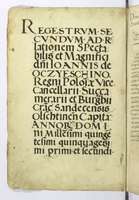 REGESTRVM SE
CVNDVM ADR
lationem Specta
bilis et Magnifici
dni IOANNIS de
OCZYESCHINO
Regni Poloniæ Vice
Cancellarii Succa
merarii et Burgbii
Crac Sandecensis
Olschtinen Capita
ANNOR DOM I
ni Millesimi quinge
tesimi quinquagesi
mi primi et secundi